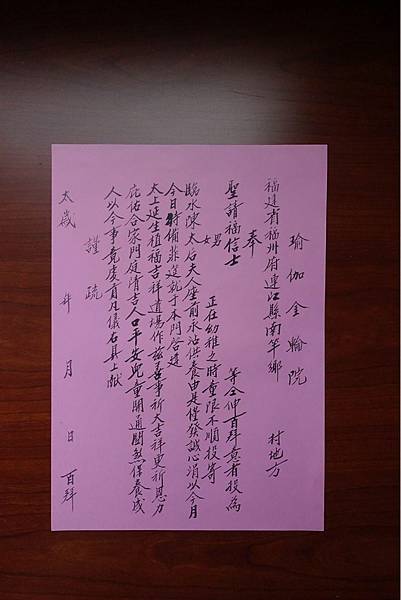 瑜伽金輪院
福建省福州府連江縣南竿鄉 村地方
奉
聖請福信士 等仝伸百拜意者投為
男
女
正在幼稚之時童限不順投寄
臨水陳太后夫人座前永沾供養由是恪發誠心涓以今月
今日特備菲筵就于本門啓建
太上延生植福吉祥道場作茲善事祈大吉祥更祈恩力
庇佑合家門庭清吉人口平安兒童開通關煞保養成
人以今事竟虔具凡儀右具上献
謹疏
太歲 年 月 日 百拜